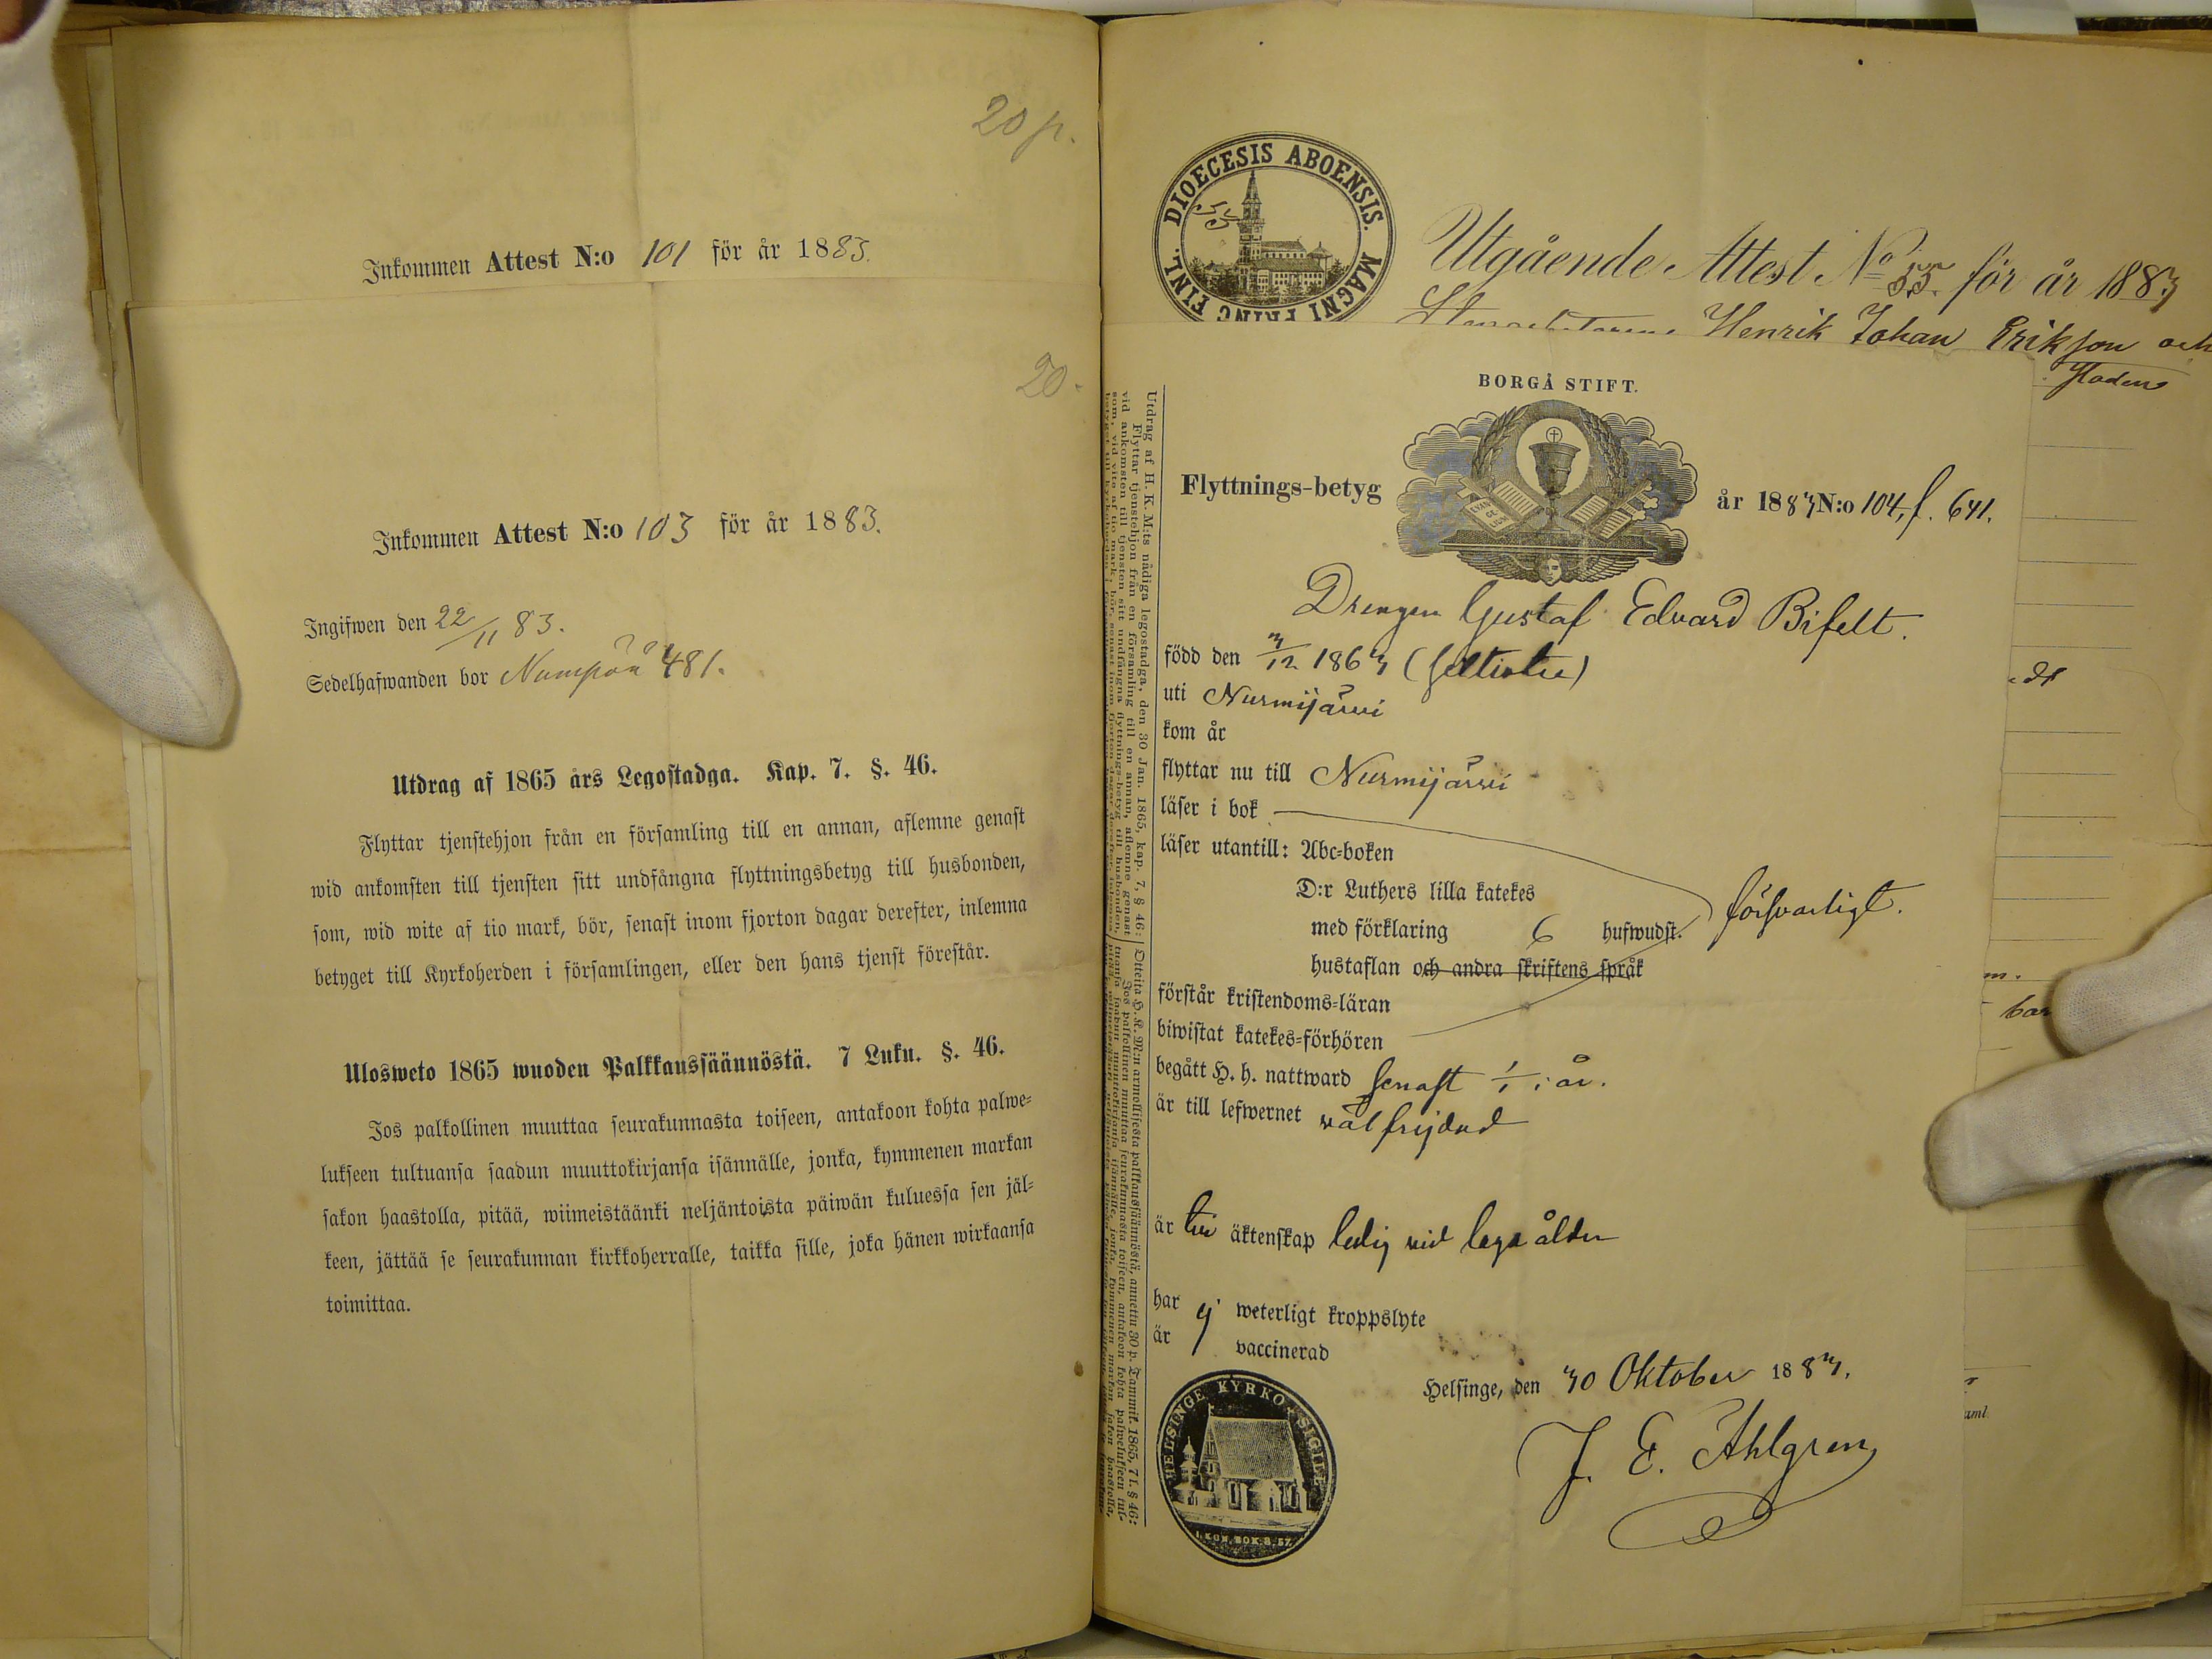 20 p.
Inkommen Attest N:o 101 för år 1883.
20.
Inkommen Attest N:o 103 för år 1883.
Ingifwen den 22/11 83.
Sedelhafwanden bor Numpää 481.
Utdrag af 1865 års Legostadga. Kap. 7. §. 46.
Flyttar tjenstehjon från en församling till en annan, aflemne genast
wid ankomsten till tjensten sitt undfångna flyttningsbetyg till husbonden,
som, wid wite af tio mark, bör, senast inom fjorton dagar derefter, inlemna
betyget till Kyrkoherden i församlingen, eller den hans tjenst förestår.
Ulosweto 1865 wuoden Palkkaussäännöstä. 7 Luku. §. 46.
Jos palkollinen muuttaa seurakunnasta toiseen, antakoon kohta palwe-
lukseen tultuansa saadun muuttokirjansa isännälle, jonka, kymmenen markan
sakon haastolla, pitää, wiimeistäänki neljäntoista päiwän kuluessa sen jäl-
keen, jättää se seurakunnan kirkkoherralle, taikka sille, joka hänen wirkaansa
toimittaa.
DIOECESIS ABOENSIS. MAGNI PRINC FINL.
55
Utgående Attest No 55 för år 1883
Henrik Johan Erikson och
BORGÅ STIFT.
Flyttnings-betyg år 1883 N:o 104, f. 641.
EVAN GE LIUM
Drengen Gustaf Edvard Bifelt.
född den 3/12 1863
uti Nurmijärvi
kom år
flyttar nu till Nurmijärvi
läser i bok
läser utantill: Abc-boken
D:r Luthers lilla katekes
med förklaring 6 hufwudst. försvarligt.
hustaflan och andra skriftens språk
förstår kristendoms-läran
biwistat katekes-förhören
begått H. H. nattward senast 1/1 i år.
är till lefwernet välfrejdad
är till äktenskap ledig vid laga ålder
har ej weterligt kroppslyte
är vaccinerad
Helsinge, den 30 Oktober 1883.
J. E. Ahlgren
HELSINGE KYRKO SIGILL
I. KON. BOK. 8. 57.
Utdrag af H. K. M:ts nådiga legostadga, den 30 Jan. 1865, kap. 7, § 46:
Flyttar tjenstehjon från en församling till en annan, aflemne genast
vid ankomsten till tjensten sitt undfångna flyttnings-betyg till husbonden,